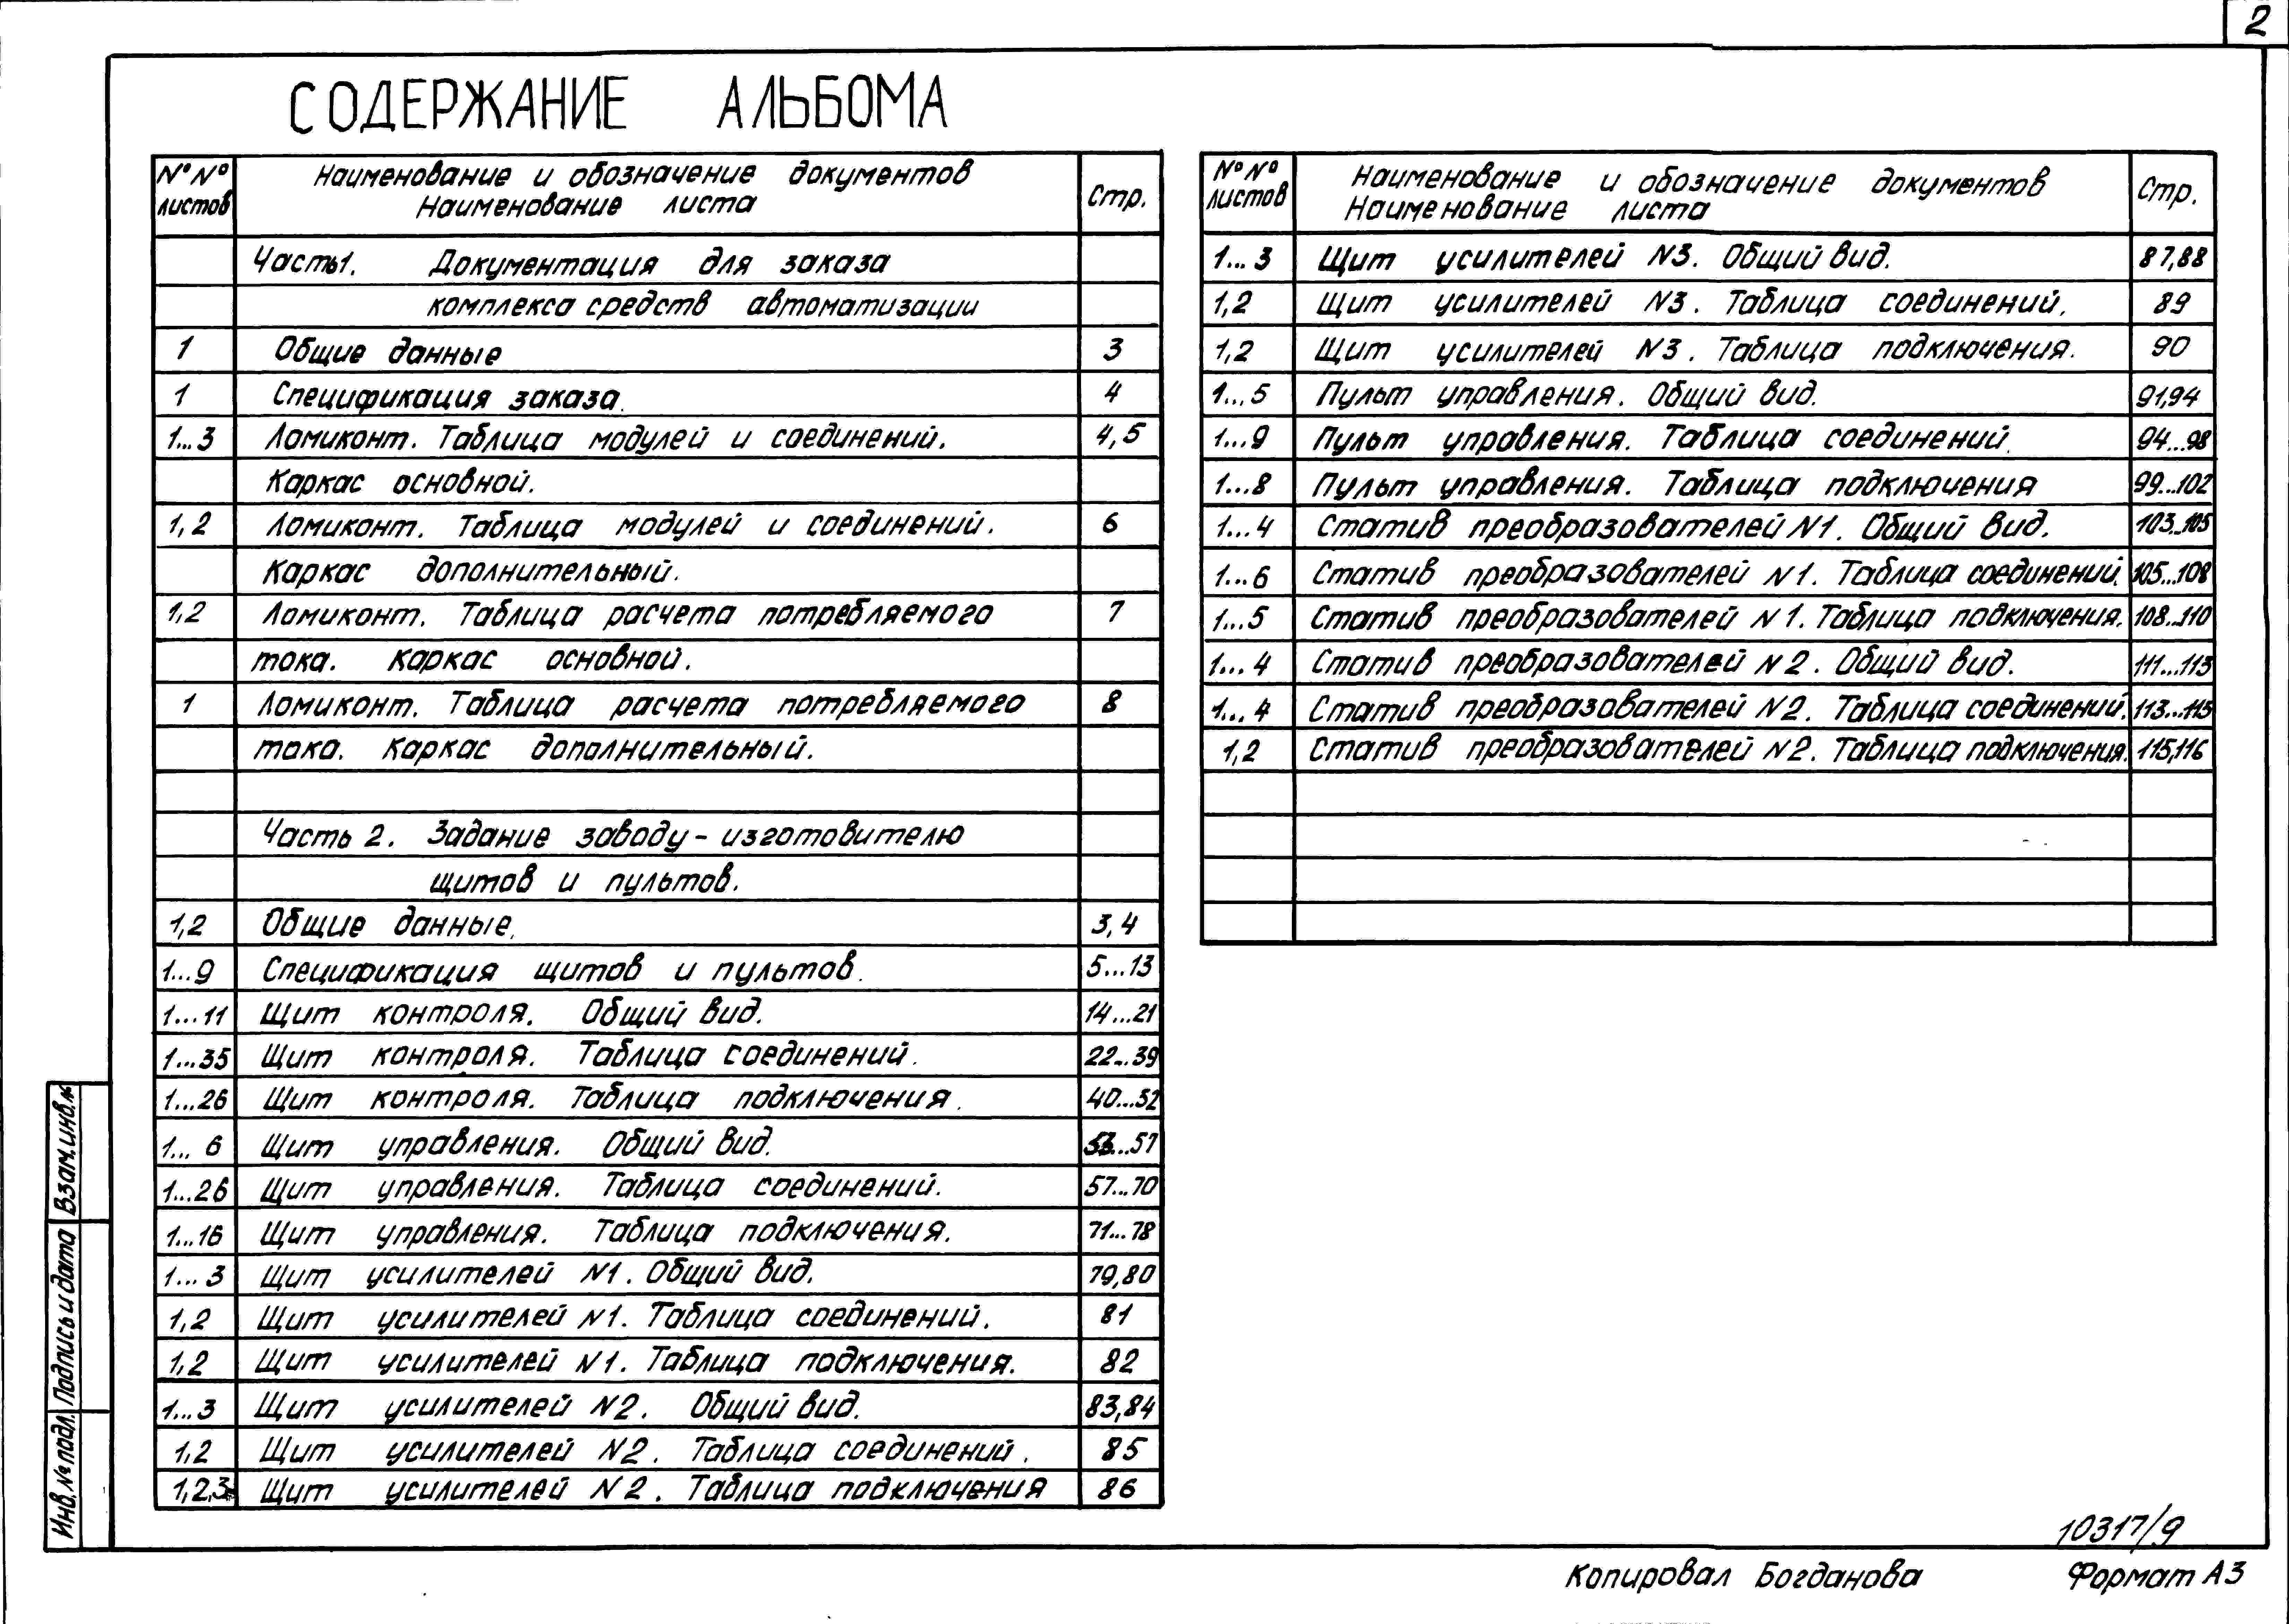 2
СОДЕРЖАНИЕ АЛЬБОМА
№№ листов
Наименование и обозначение документов
Наименование листа
Стр.
Часть 1. Документация для заказа
комплекса средств автоматизации
1 Общие данные 3
1 Спецификация заказа. 4
1...3 Ломиконт. Таблица модулей и соединений. 4,5
Каркас основной.
1,2 Ломиконт. Таблица модулей и соединений. 6
Каркас дополнительный.
1,2 Ломиконт. Таблица расчета потребляемого 7
тока. Каркас основной.
1 Ломиконт. Таблица расчета потребляемого 8
тока. Каркас дополнительный.
Часть 2. Задание заводу-изготовителю
щитов и пультов.
1,2 Общие данные. 3,4
1...9 Спецификация щитов и пультов. 5...13
1...11 Щит контроля. Общий вид. 14...21
1...35 Щит контроля. Таблица соединений. 22...39
1...26 Щит контроля. Таблица подключения. 40...52
1...6 Щит управления. Общий вид. 53...57
1...26 Щит управления. Таблица соединений. 57...70
1...16 Щит управления. Таблица подключения. 71...78
1...3 Щит усилителей N1. Общий вид. 79,80
1,2 Щит усилителей N1. Таблица соединений. 81
1,2 Щит усилителей N1. Таблица подключения. 82
1...3 Щит усилителей N2. Общий вид. 83,84
1,2 Щит усилителей N2. Таблица соединений. 85
1,2,3 Щит усилителей N2. Таблица подключения 86
№№ листов
Наименование и обозначение документов
Наименование листа
Стр.
1...3 Щит усилителей N3. Общий вид. 87,88
1,2 Щит усилителей N3. Таблица соединений. 89
1,2 Щит усилителей N3. Таблица подключения. 90
1...5 Пульт управления. Общий вид. 91,94
1...9 Пульт управления. Таблица соединений. 94...98
1...8 Пульт управления. Таблица подключения 99...102
1...4 Статив преобразователей N1. Общий вид. 103...105
1...6 Статив преобразователей N1. Таблица соединений. 105...108
1...5 Статив преобразователей N1. Таблица подключения. 108...110
1...4 Статив преобразователей N2. Общий вид. 111...113
1...4 Статив преобразователей N2. Таблица соединений. 113...115
1,2 Статив преобразователей N2. Таблица подключения. 115,116
Взам. инв. №
Подпись и дата
Инв. № подл.
10317/9
Копировал Богданова Формат А3